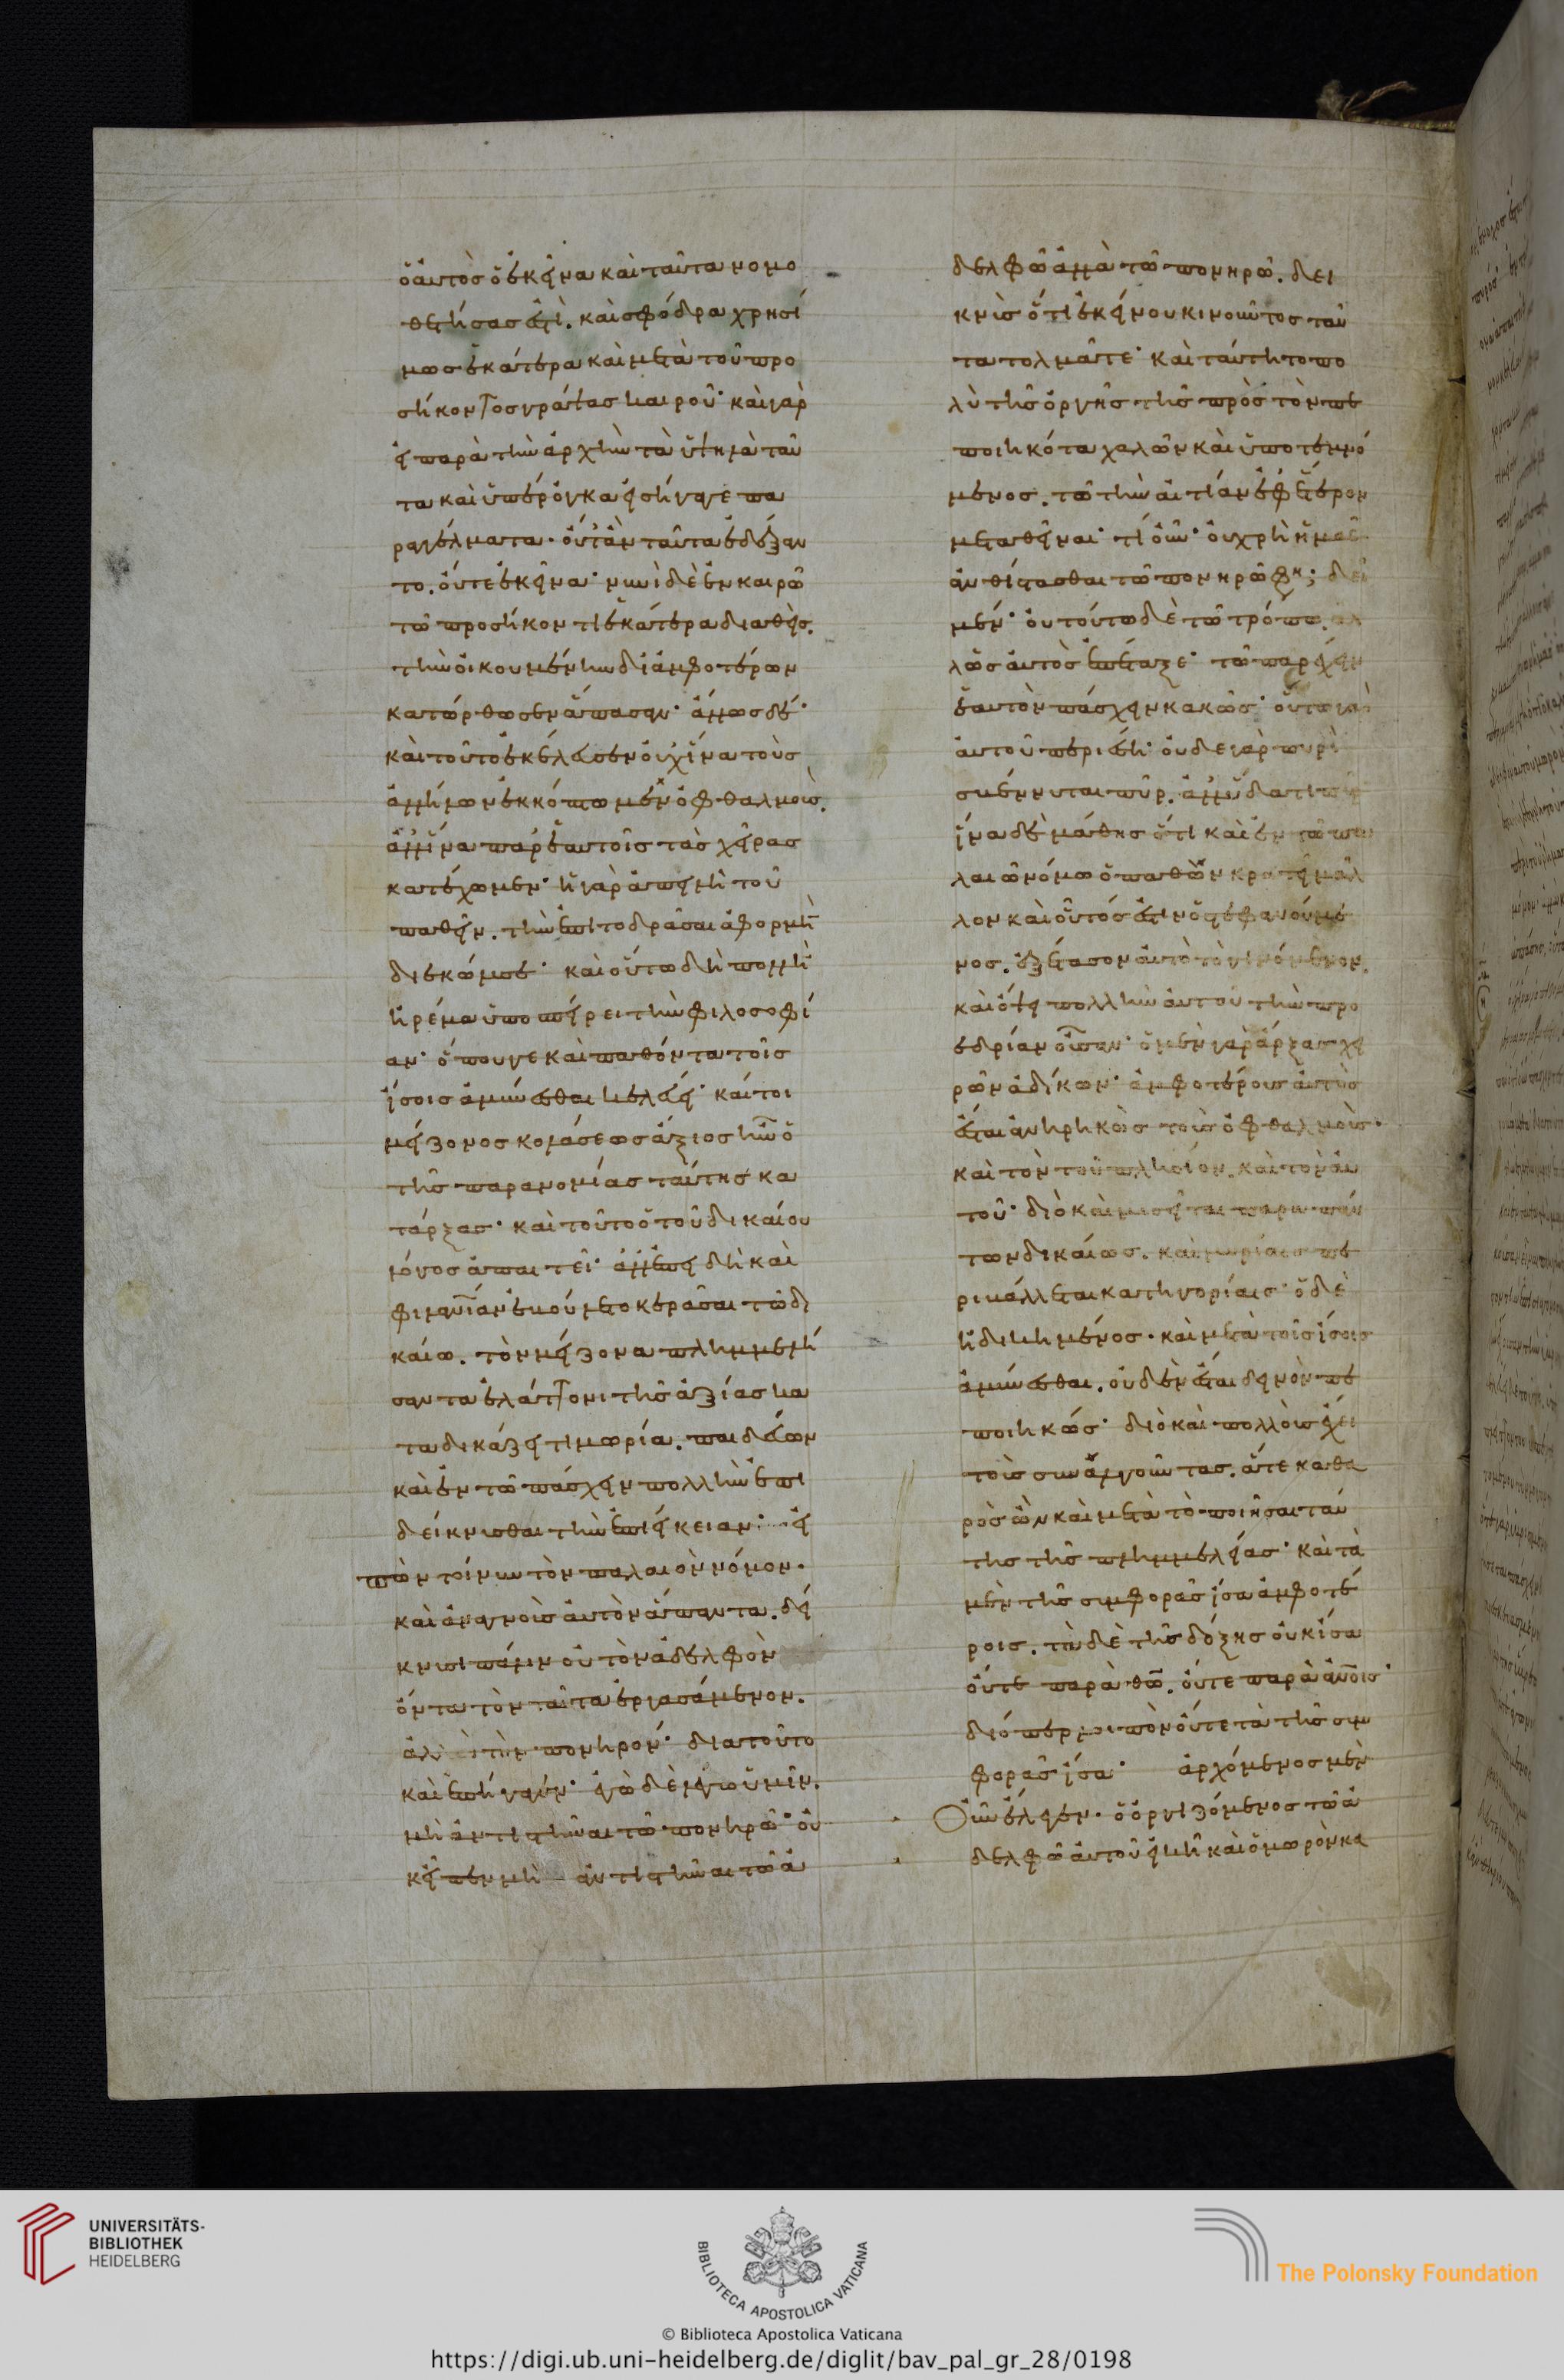 ὁ αὐτὸς ὁ ἐκεῖνα καὶ ταῦτα νομο
θετήσας ἐστὶ. καὶ σφόδρα χρησί
μως ἑκάτερα καὶ μετὰ τοῦ προ
σήκοντος γράψας καιροῦ· καὶ γὰρ
εἰ παρὰ τὴν ἀρχὴν τὰ ὑψηλὰ ταῦ
τα καὶ ὑπέρογκα εἰσήγαγε πα
ραγγέλματα· οὔτ' ἂν ταῦτα ἐδέξαν
το. οὔτε ἐκεῖνα· νυνὶ δὲ ἐν καιρῶ
τῶ προσήκοντι ἑκάτερα διαθεὶς.
τὴν οἰκουμένην δι' ἀμφοτέρων
κατώρθωσεν ἅπασαν· ἄλλως δέ·
καὶ τοῦτο ἐκέλευσεν οὐχ ἵνα τοὺς
ἀλλήλων ἐκκόπτωμεν ὀφθαλμούς.
ἀλλ' ἵνα παρ' ἑαυτοῖς τὰς χεῖρας
κατέχωμεν· ἡ γὰρ ἀπειλὴ τοῦ
παθεῖν. τὴν ἐπὶ τὸ δρᾶσαι ἀφορμὴν
διεκώλυσε· καὶ οὕτω δὴ πολλὴν
ἠρέμα ὑποσπείρει τὴν φιλοσοφί
αν· ὅπουγε καὶ παθόντα τοῖς
ἴσοις ἀμύνεσθαι κελεύει· καίτοι
μείζονος κολάσεως ἄξιος ἦν ὁ
τῆς παρανομίας ταύτης κα
τάρξας· καὶ τοῦτο ὁ τοῦ δικαίου
λόγος ἀπαιτεῖ· ἀλλ' ἐπειδὴ καὶ
φιλανθρωπίαν ἐβούλετο κεράσαι τῶ δι
καίω. τὸν μείζονα πλημμελή
σαντα ἐλάττονι τῆς ἀξίας κα
ταδικάζει τιμωρία. παιδεύων
καὶ ἐν τῶ πάσχειν πολλὴν ἐπι
δείκνυσθαι τὴν ἐπιείκειαν· εἰ
πὼν τοίνυν τὸν παλαιὸν νόμον.
καὶ ἀναγνοὺς αὐτὸν ἅπαντα. δεί
κνυσι πάλιν οὐ τὸν ἀδελφὸν
ὄντα τὸν ταῦτα ἐργασάμενον.
ἀλλὰ τὸν πονηρόν· διὰ τοῦτο
καὶ ἐπήγαγεν· ἐγὼ δὲ λέγω ὑμῖν.
μὴ ἀντιστῆναι τῶ πονηρῶ· οὐ
κ εἶπεν μὴ ἀντιστῆναι τῶ ἀ
δελφῶ ἀλλὰ τῶ πονηρῶ. δει
κνὺς ὅτι ἐκείνου κινοῦντος ταῦ
τα τολμᾶται· καὶ ταύτη τὸ πο
λὺ τῆς ὀργῆς τῆς πρὸς τὸν πε
ποιηκότα χαλῶν καὶ ὑποτεμνό
μενος. τῶ τὴν αἰτίαν ἐφ' ἕτερον
μεταθεῖναι· τί οὖν· οὐ χρὴ ἡμᾶς
ἀνθίστασθαι τῶ πονηρῶ φη; δεῖ
μέν· οὐ τούτω δὲ τῶ τρόπω. ἀλ
λ' ὡς αὐτὸς ἐπέταξε· τῶ παρέχειν
ἑαυτὸν πάσχειν κακῶς· οὕτω γὰρ
αὐτοῦ περιέση· οὐδὲ γὰρ πυρὶ
σβέννυται πῦρ. ἀλλ' ὕδατι πῦρ
ἵνα δὲ μάθης ὅτι καὶ ἐν τῶ πα
λαιῶ νόμω ὁ παθὼν κρατεῖ μᾶλ
λον καὶ οὗτός ἐστιν ὁ στεφανούμε
νος. ἐξέτασον αὐτὸ τὸ γινόμενον.
καὶ ὄψει πολλὴν αὐτοῦ τὴν προ
εδρίαν οὖσαν· ὁ μὲν γὰρ ἄρξας χει
ρῶν ἀδίκων· ἀμφοτέρους αὐτὸς
ἔσται ἀνηρηκὼς τοὺς ὀφθαλμοὺς·
καὶ τὸν τοῦ πλησίον. καὶ τὸν αὐ
τοῦ· διὸ καὶ μισεῖται παρὰ πάν
των δικαίως. καὶ μυρίαις πε
ριβάλλεται κατηγορίαις· ὁ δὲ
ἠδικημένος. καὶ μετὰ τοῖς ἴσοις
ἀμύνεσθαι. οὐδὲν ἔσται δεινὸν πε
ποιηκώς· διὸ καὶ πολλοὺς ἔχει
τοὺς συναλγοῦντας. ἅτε καθα
ρὸς ὢν καὶ μετὰ τὸ ποιῆσαι ταύ
της τῆς πλημμελείας· καὶ τὰ
μὲν τῆς συμφορᾶς ἴσα ἀμφοτέ
ροις. τὰ δὲ τῆς δόξης οὐκ ἴσα
οὔτε παρὰ θῶ. οὔτε παρὰ ἀνοις·
διόπερ λοιπὸν οὔτε τὰ τῆς συμ
φορᾶς ἴσα· ἀρχόμενος μὲν
Οὖν ἔλεγεν· ὁ ὀργιζόμενος τῶ ἀ
δελφῶ αὐτοῦ εἰκῆ καὶ ὁ μωρὸν κα
UNIVERSITÄTS-
BIBLIOTHEK
HEIDELBERG
BIBLIOTECA APOSTOLICA VATICANA
The Polonsky Foundation
© Biblioteca Apostolica Vaticana
https://digi.ub.uni-heidelberg.de/diglit/bav_pal_gr_28/0198